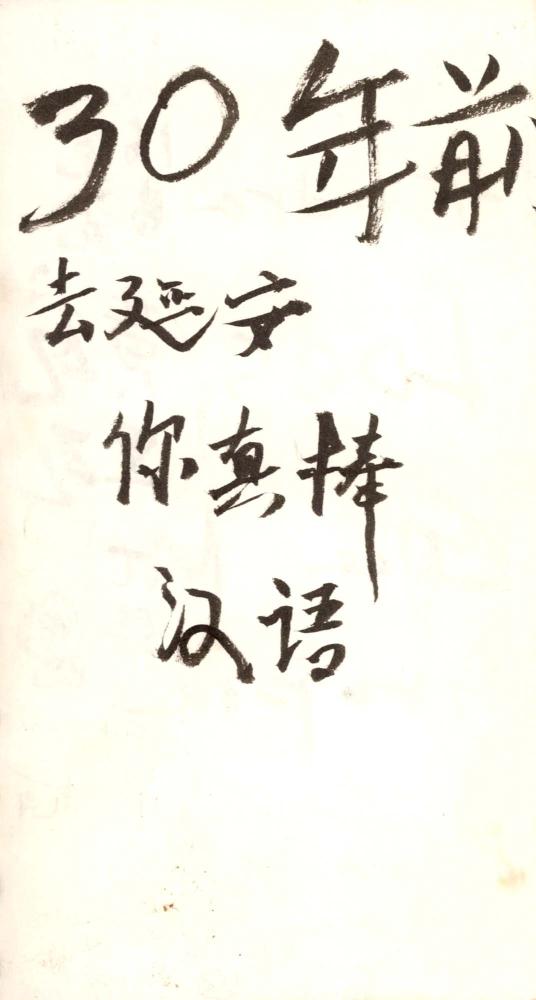 30年前
去延安
你真棒
汉语